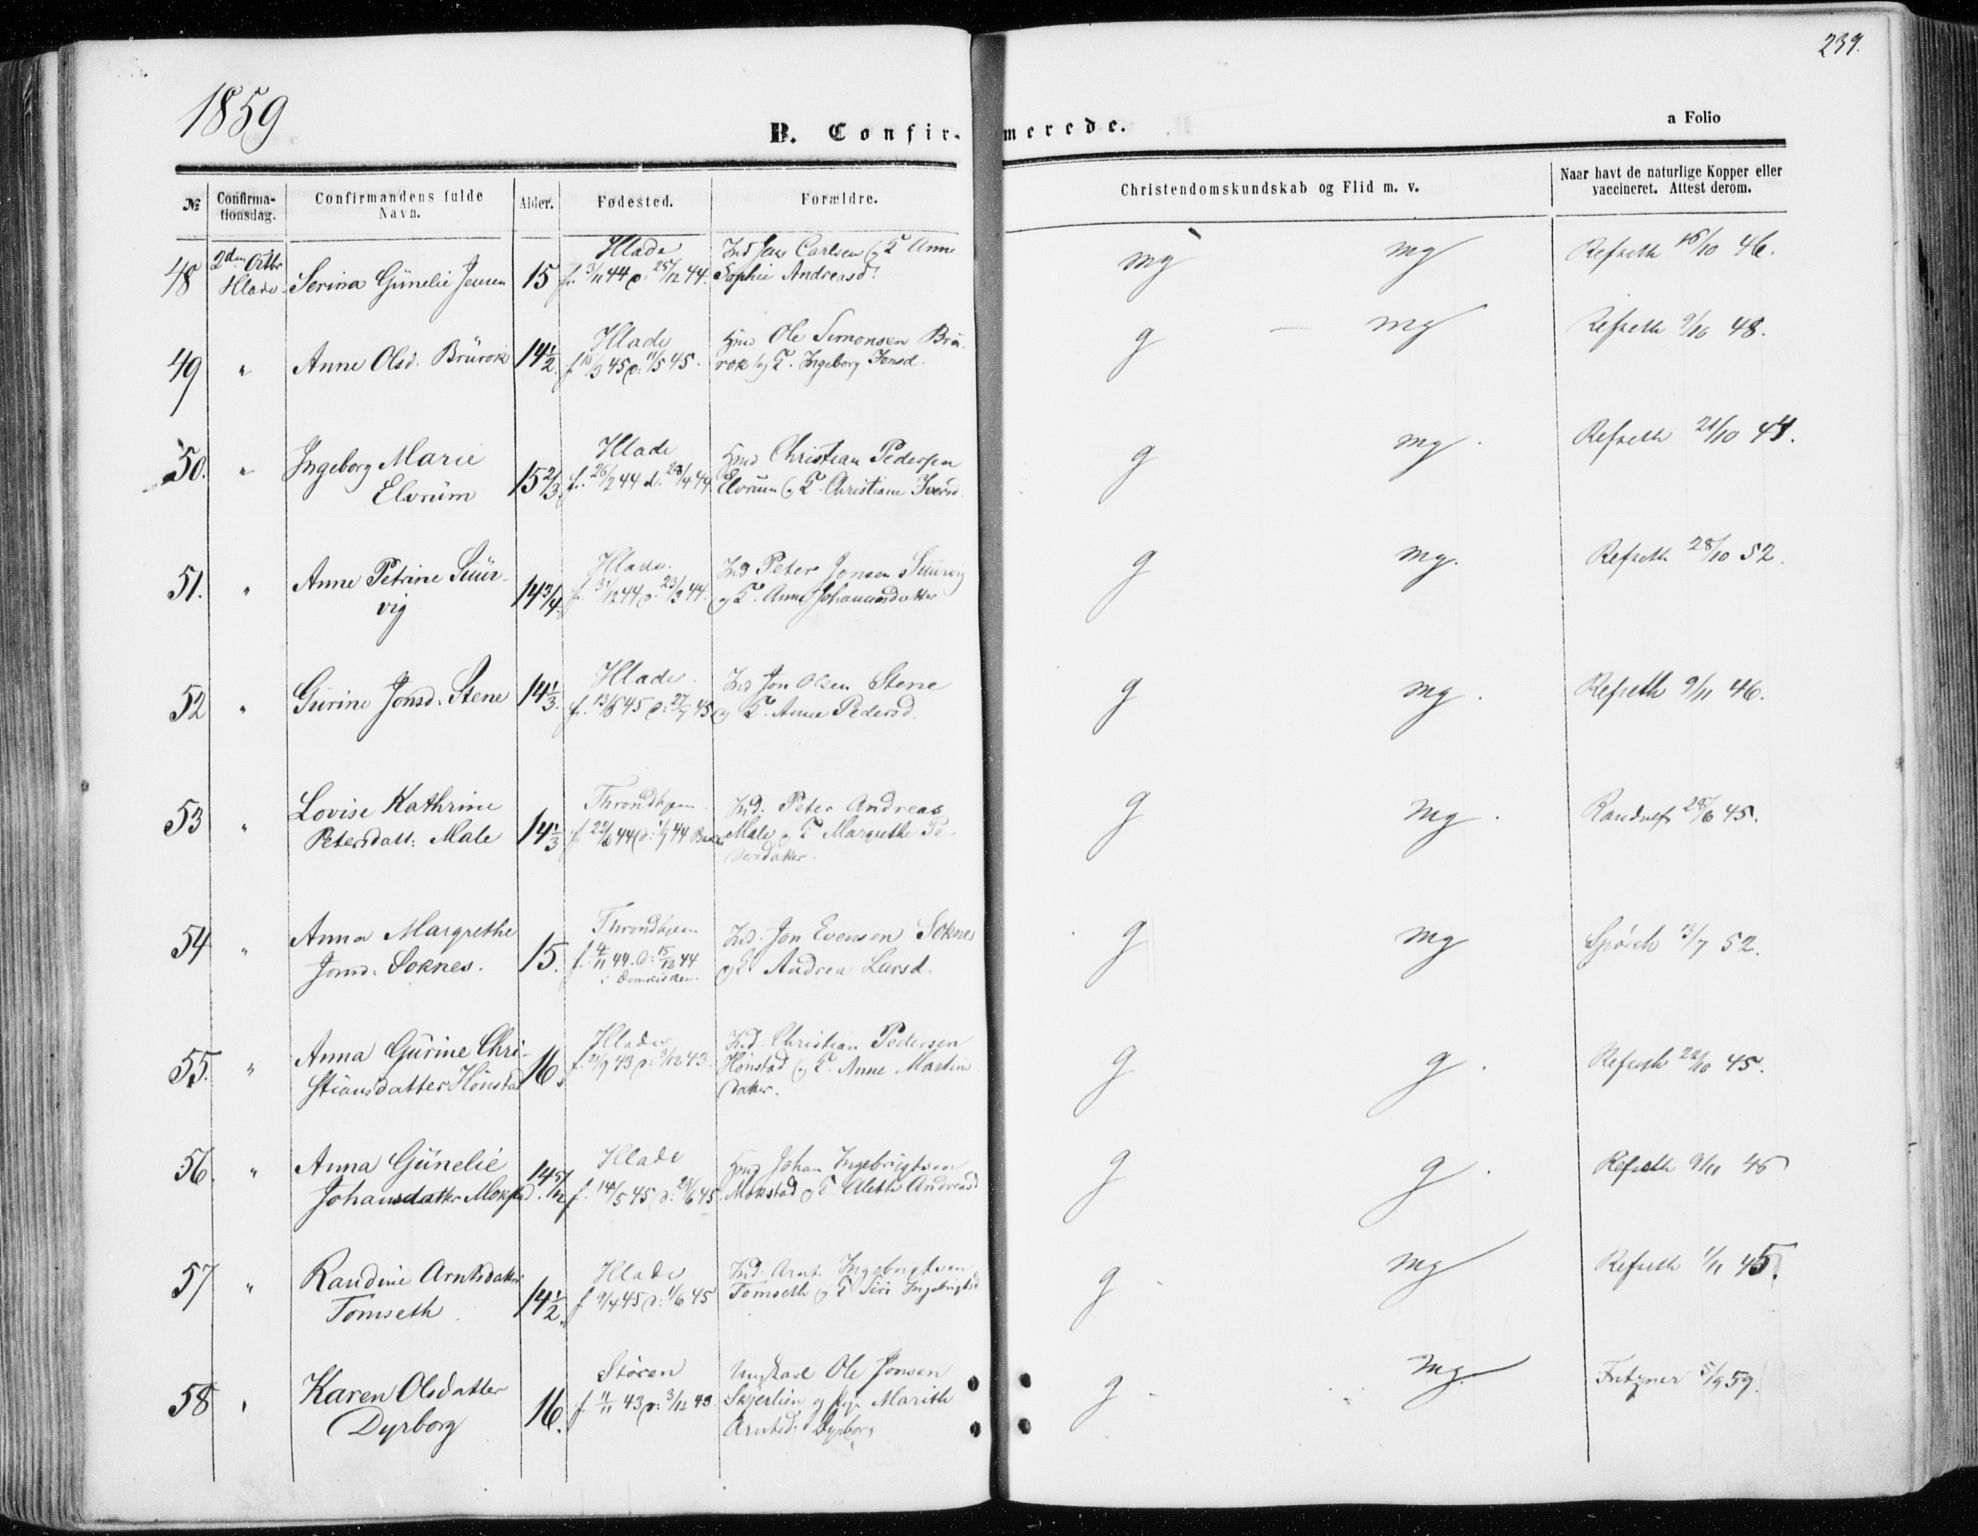 239.
1859
B. Confir- merede.
a Folio
№ Confirma-tionsdag. Confirmandens fulde Navn. Alder. Fødested. Forældre. Christendomskundskab og Flid m. v. Naar havt de naturlige Kopper eller vaccineret. Attest derom.
2den Hlade Ind Jens Carlsen og K Anne mg mg Refseth 16/10 46.
48 Hlade Serina Günelie Jensen 15 f. 3/11 44 d: 25/12 44. Sophie Andreasd.
Hlade Hmd Ole Simonsen Brü- g mg Refseth 9/10 48.
49 " Anne Olsd. Brürok 14½ f. 16/3 45 d: 11/5 45. rok og K. Ingeborg Jonsd.
50. " Ingeborg Marie Hlade Hmd Christian Pedersen g mg. Refseth 21/10 44.
Elvrüm 15 2/3. f. 26/2 44 d. 28/4 44 Elvrum og K. Christiane Iversd.
51. " Anne Petrine Süür- Hlade. Ind Peter Jonsen Suurvig g mg. Refseth 28/10 52.
vig 14 3/4. d: 23/3 44. og K. Anne Johannesdatter
Hlade. Ind Jon Olsen Stene g mg. Refseth 9/11 46.
52 " Gurine Jonsd. Stene 14 1/3. f. 13/6 45 d: 27/7 45 og K. Anne Pedersd.
53 " Lovise Kathrine Throndhjem. Ind. Peter Andreas g mg. 28/6 45.
Petersdatt: Male 14 1/3 f. 22/6 44 d: 1/9 44 Male og K Margrethe Pe-
dersdatter.
54 " Anna Margrethe Throndhjem Ind. Jon Evensen Soknes g mg Spörck 13/7 52.
Jonsd. Soknes. 15. f. 4/11 44. d: 15/12 44 og K. Andrea Larsd.
i Domkirken.
55. " Anna Gürine Chri- Hlade Ind. Christian Pedersen g g. Refseth 22/10 45.
stiansdatter Hönstad 16. f. 21/9 43 d: 3/12 43. Hönstad og K. Anne Martins
datter.
56. " Anna Günelie Hlade Hmd Johan Ingebrigtsen g g. Refseth 9/11 45
Johansdatter Mokstad. 14 5/12 f. 14/5 45 d: 24/6 45. Mokstad og K Aleth Andreasd
57 " Randine Arntsdatter Hlade Ind. Arnt Ingebrigtsen g mg Refseth 1/11 45.
Tomseth 14½. f 9/4 45 d: 1/6 45 Tomseth og K Siri Ingebrigtsd
58 " Karen Olsdatter Støren Ungkarl Ole Jonsen g mg. Fritzner 5/9 59.
Dyrborg 16. f. 11/11 43 d: 3/12 43. Skjerlien og Pige Marith
Arntsd. Dyrborg